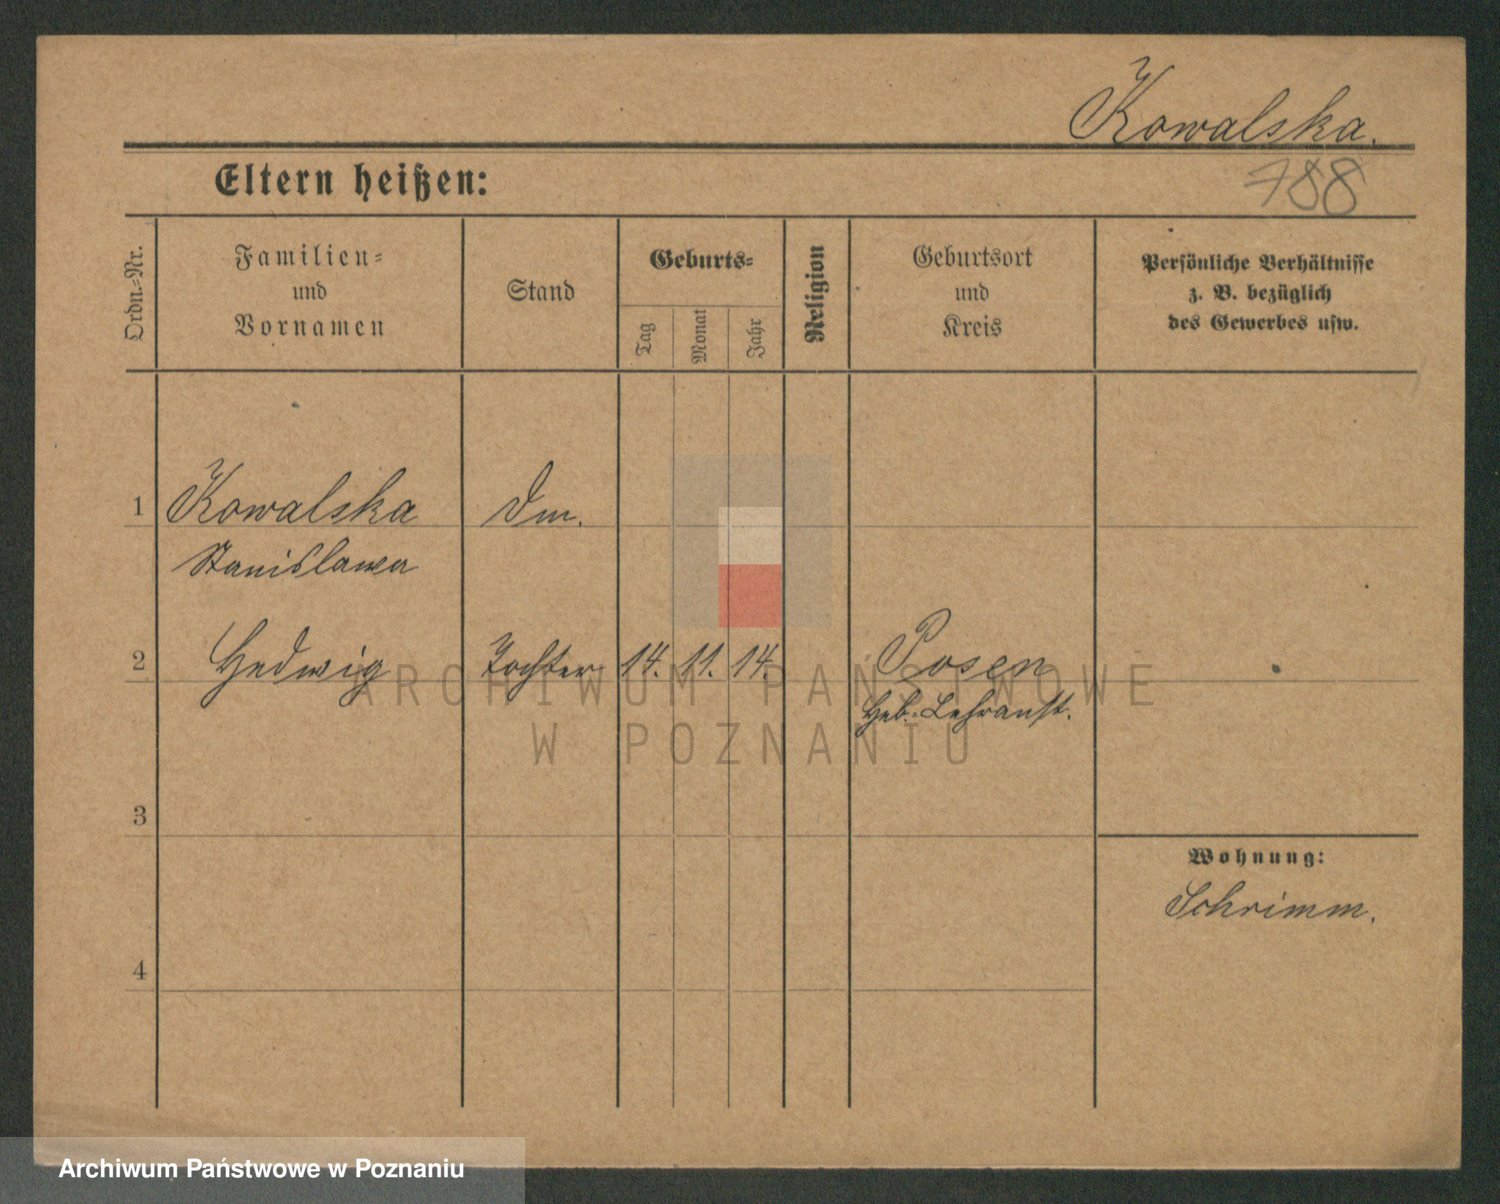 Kowalska.
788
Eltern heißen:
Ordn.-Nr.
Familien-
und
Vornamen
Stand
Geburts-
Tag
Monat
Jahr
Religion
Geburtsort
und
Kreis
Persönliche Verhältnisse
z. B. bezüglich
des Gewerbes usw.
1 Kowalska Dm.
Stanislawa
2 Hedwig Tochter 14. 11. 14. Posen
Heb. Lehranst.
3
4
Wohnung:
Schrimm.
ARCHIWUM PAŃSTWOWE
W POZNANIU
Archiwum Państwowe w Poznaniu